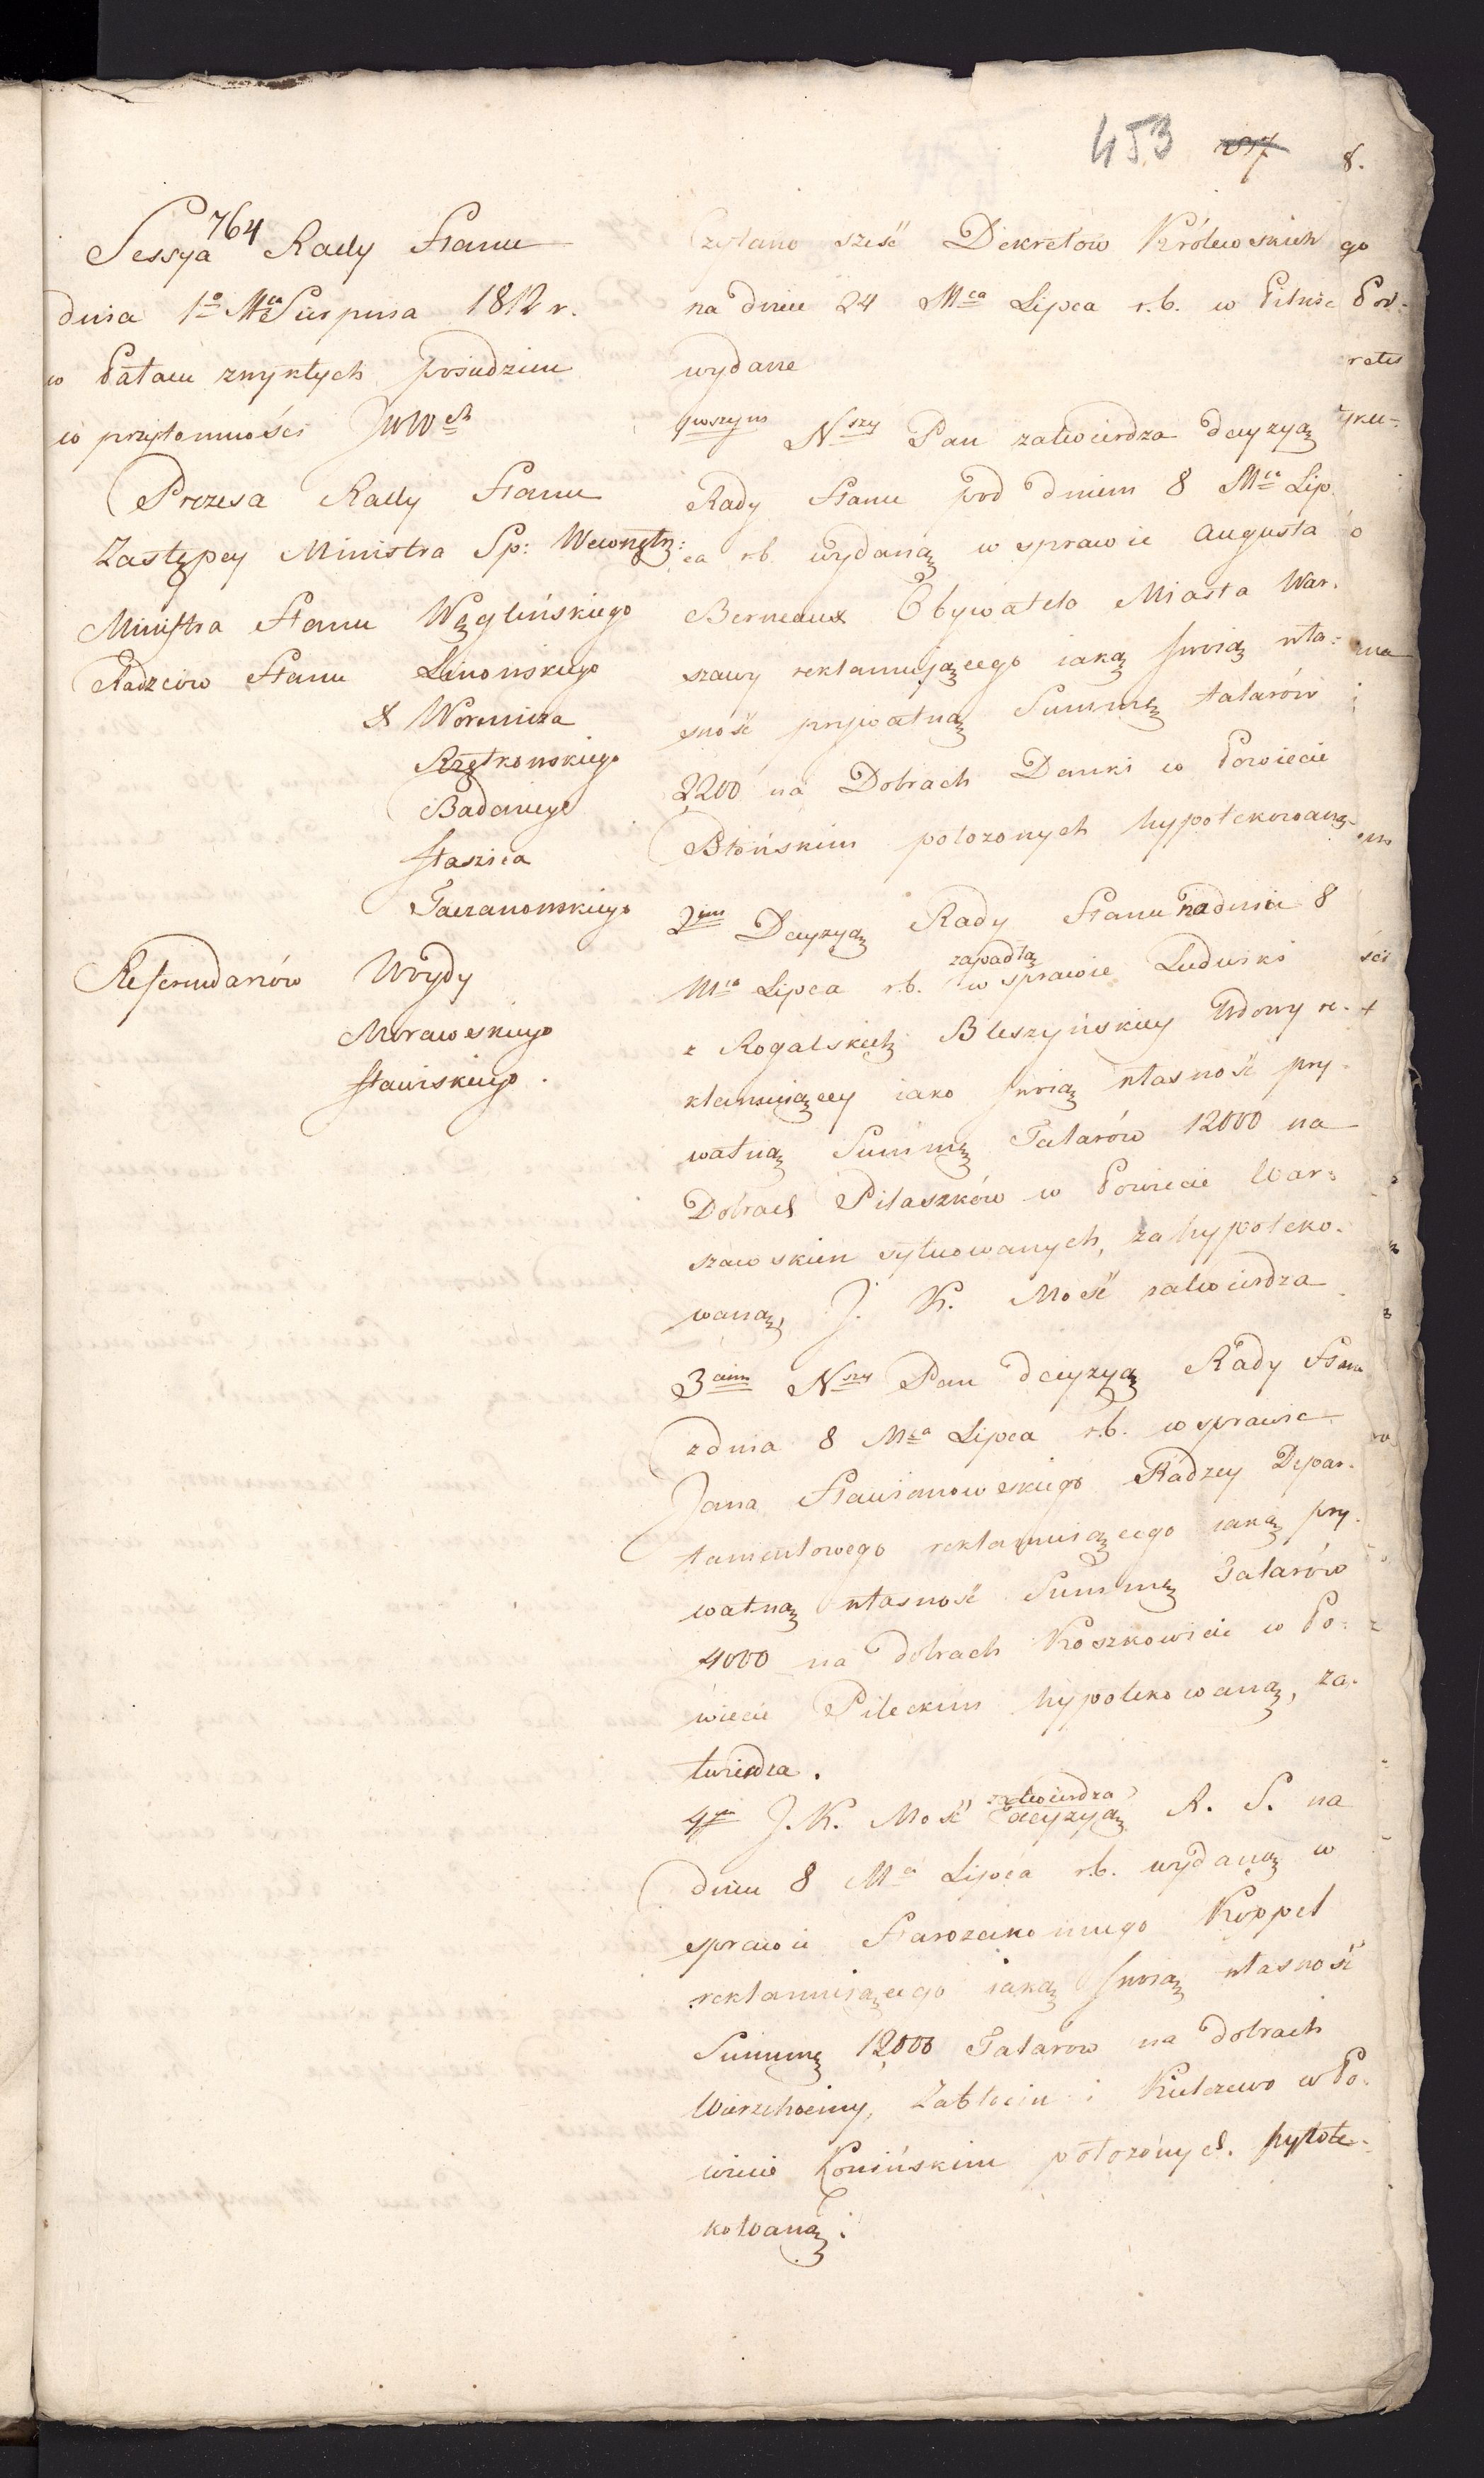 453 8.
Sessya 764 Rady Stanu
dnia 1o Mca Sierpnia 1812 r.
w Pałacu zwykłych posiedzeń
w przytomności JWWch
Prezesa Rady Stanu
Zastępcy Ministra Sp: Wewnętrz:
Ministra Stanu Węglińskiego
Radzców Stanu Linowskiego
& Woronicza
Rzętkowskiego
Badeniego
Staszica
Taczanowskiego
Referendarzów Woydy
Morawskiego
Stawiskiego.
Czytano sześć Dekretów Królewskich
na dniu 24 Mca Lipca r.b. w Pilnie
wydane
1wszym Nszy Pan zatwierdza decyzyą
Rady Stanu pod dniem 8 Mca Lip
ca r.b. wydaną w sprawie Augusta
Berneaux Obywatela Miasta War.
szawy reklamującego iaką swoią wła=
sność prywatną Summę talarów
2200 na Dobrach Danki w Powiecie
Błońskim polozonych hypotekowaną.
2im Decyzyą Rady Stanu na dniu 8
Mca Lipca r.b. zapadłą w sprawie Ludwiki
z Rogalskich Bleszyńskiey Wdowy re.
klamuiącey iako swoią własność pry.
watną Summę Talarów 12000 na
Dobrach Pilaszków w Powiecie War=
szawskim sytuowanych, zahypoteko.
waną, J. K. Mość zatwierdza
3cim Nszy Pan decyzyą Rady Stanu
z dnia 8 Mca Lipca r.b. w sprawie
Jana Stanisnowskiego Radzcy Depar.
tamentowego reklamuiącego iaką pry.
watną własność Summę Talarów
4000 na dobrach Koszkowicie w Po=
wiecie Pileckim hypotekowaną, za.
twierdza.
4ym J. K. Mość zatwierdza decyzyą R. S. na
dniu 8 Mca Lipca r.b. wydaną w
sprawie Starozakonnego Koppel
reklamuiącego iaką swoią własność
Summę 12000 Talarow na dobrach
Wierzchociny, Zabłocin i Kulczewo w Po.
wiecie Konińskim położonych. hypote=
kowaną: